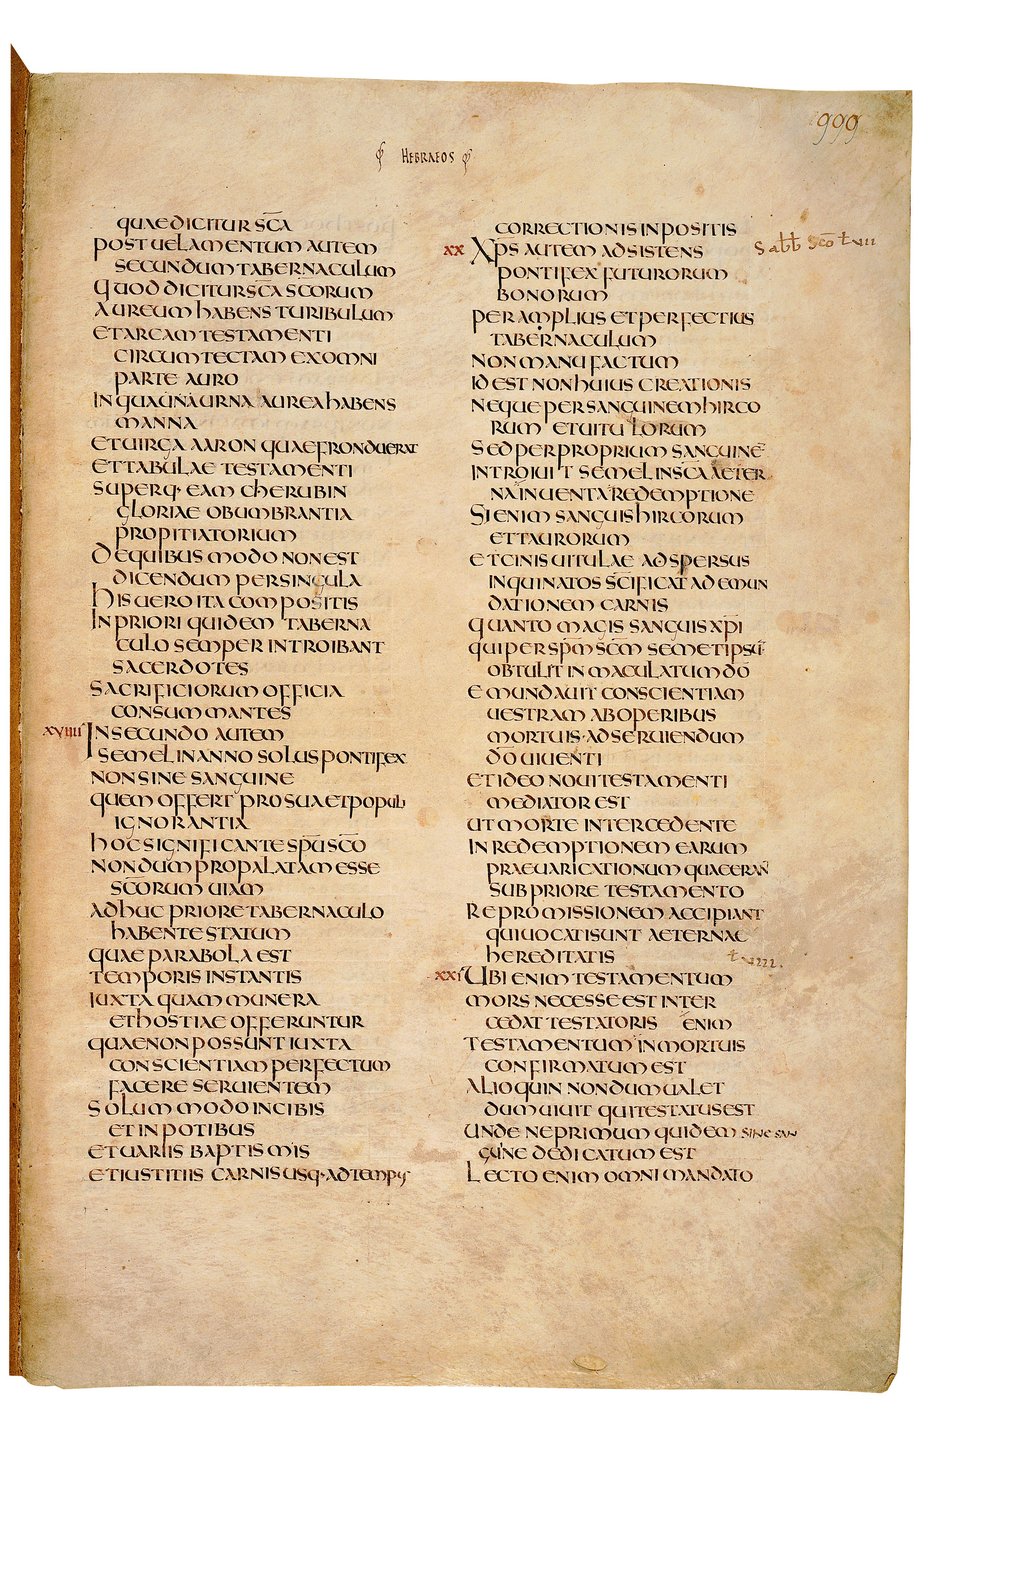 HEBRAEOS
999
QUAE DICITUR SC̄A
POST UELAMENTUM AUTEM
SECUNDUM TABERNACULUM
QUOD DICITUR SC̄A SCORUM
AUREUM HABENS TURIBULUM
ET ARCAM TESTAMENTI
CIRCUMTECTAM EX OMNI
PARTE AURO
IN QUA URNA AUREA HABENS
MANNA
ET UIRGA AARON QUAE FRONDUERAT
ET TABULAE TESTAMENTI
SUPERQ· EAM CHERUBIN
GLORIAE OBUMBRANTIA
PROPITIATORIUM
DE QUIBUS MODO NON EST
DICENDUM PER SINGULA
HIS UERO ITA COMPOSITIS
IN PRIORI QUIDEM TABERNA
CULO SEMPER INTROIBANT
SACERDOTES
SACRIFICIORUM OFFICIA
CONSUMMANTES
XVIIII IN SECUNDO AUTEM
SEMEL IN ANNO SOLUS PONTIFEX
NON SINE SANGUINE
QUEM OFFERT PRO SUA ET POPULI
IGNORANTIA
HOC SIGNIFICANTE SP̄U SC̄O
NONDUM PROPALATAM ESSE
SC̄ORUM UIAM
ADHUC PRIORE TABERNACULO
HABENTE STATUM
QUAE PARABOLA EST
TEMPORIS INSTANTIS
IUXTA QUAM MUNERA
ET HOSTIAE OFFERUNTUR
QUAE NON POSSUNT IUXTA
CONSCIENTIAM PERFECTUM
FACERE SERUIENTEM
SOLUM MODO IN CIBIS
ET IN POTIBUS
ET UARIIS BAPTISMIS
ET IUSTITIIS CARNIS USQ· AD TEMPUS
CORRECTIONIS INPOSITIS
XX XP̄S AUTEM ADSISTENS
Sabb sc̄o
PONTIFEX FUTURORUM
BONORUM
PER AMPLIUS ET PERFECTIUS
TABERNACULUM
NON MANU FACTUM
ID EST NON HUIUS CREATIONIS
NEQUE PER SANGUINEM HIRCO
RUM ET UITULORUM
SED PER PROPRIUM SANGUINĒ
INTROIUIT SEMEL IN SC̄A AETER
NA INUENTA REDEMPTIONE
SI ENIM SANGUIS HIRCORUM
ET TAURORUM
ET CINIS UITULAE ADSPERSUS
INQUINATOS SC̄IFICAT AD EMUN
DATIONEM CARNIS
QUANTO MAGIS SANGUIS XP̄I
QUI PER SP̄M SC̄M SEMETIPSŪ
OBTULIT INMACULATUM DŌ
EMUNDAUIT CONSCIENTIAM
UESTRAM AB OPERIBUS
MORTUIS· AD SERUIENDUM
DŌ UIUENTI
ET IDEO NOUI TESTAMENTI
MEDIATOR EST
UT MORTE INTERCEDENTE
IN REDEMPTIONEM EARUM
PRAEUARICATIONUM QUAE ERAN̄
SUB PRIORE TESTAMENTO
REPROMISSIONEM ACCIPIANT
QUI UOCATI SUNT AETERNAE
HEREDITATIS
XXI UBI ENIM TESTAMENTUM
MORS NECESSE EST INTER
CEDAT TESTATORIS ENIM
TESTAMENTUM IN MORTUIS
CONFIRMATUM EST
ALIOQUIN NONDUM UALET
DUM UIUIT QUI TESTATUS EST
UNDE NE PRIMUM QUIDEM SINE SAN
GUINE DEDICATUM EST
LECTO ENIM OMNI MANDATO